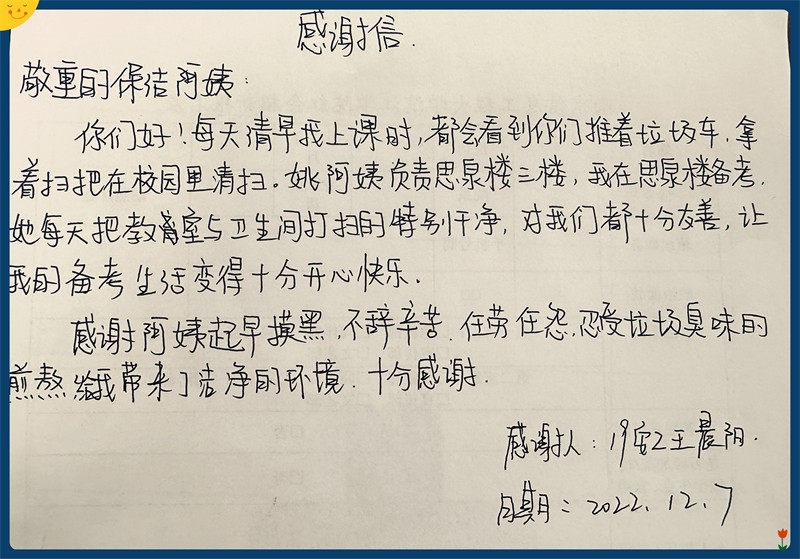 感谢信.
敬重的保洁阿姨:
你们好!每天清早我上课时,都会看到你们推着垃圾车,拿
着扫把在校园里清扫。姚阿姨负责思泉楼三楼,我在思泉楼备考,
她每天把教室与卫生间打扫的特别干净,对我们都十分友善,让
我的备考生活变得十分开心快乐.
感谢阿姨起早摸黑,不辞辛苦.任劳任怨,忍受垃圾臭味的
煎熬给我带来了洁净的环境.十分感谢.
感谢人:19安工王晨阳.
日期:2022.12.7